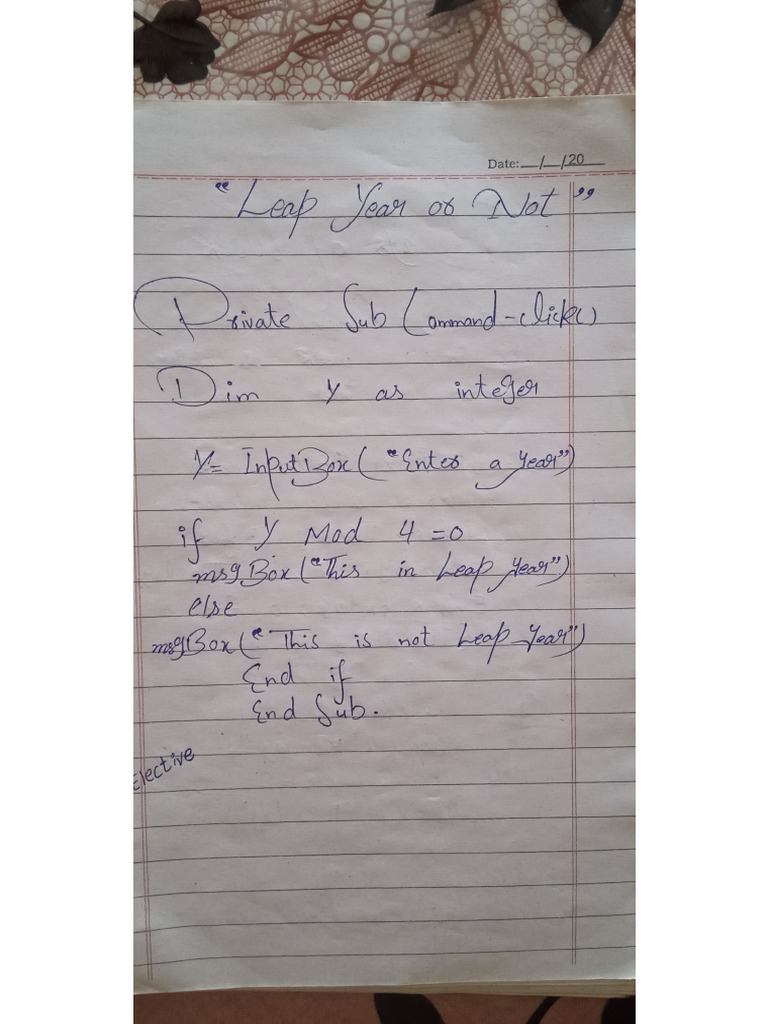 Date: __/__/20__
"Leap Year or Not"
Private Sub Command-click()
Dim Y as integer
Y= InputBox("Enter a year")
if Y Mod 4 =0
msgBox("This in Leap year")
else
msgBox("This is not Leap year")
End if
End Sub.
Elective